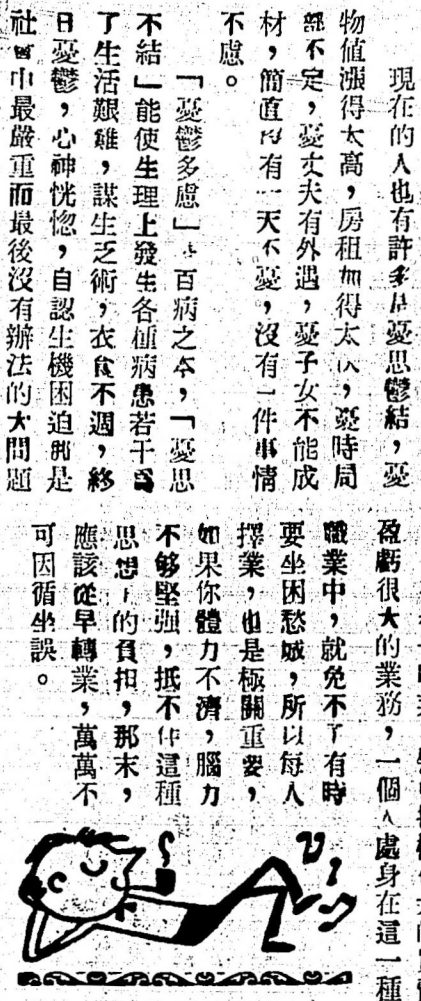 現在的人也有許多是憂思鬱結，憂
物值漲得太高，房租加得太大，憂時局
不定，憂丈夫有外遇，憂子女不能成
材，簡直沒有一天不憂，沒有一件事情
不慮。
「憂鬱多慮」是百病之本，「憂思
不結」能使生理上發生各種病患若干為
了生活艱難，謀生乏術，衣食不週，終
日憂鬱，心神恍惚，自認生機困迫則是
社會中最嚴重而最後沒有辦法的大問題
盈虧很大的業務，一個人處身在這一種
職業中，就免不了有時
要坐困愁城，所以每人
擇業，也是極關重要，
如果你體力不濟，腦力
不够堅强，抵不住這種
思想上的負担，那末，
應該從早轉業，萬萬不
可因循坐誤。